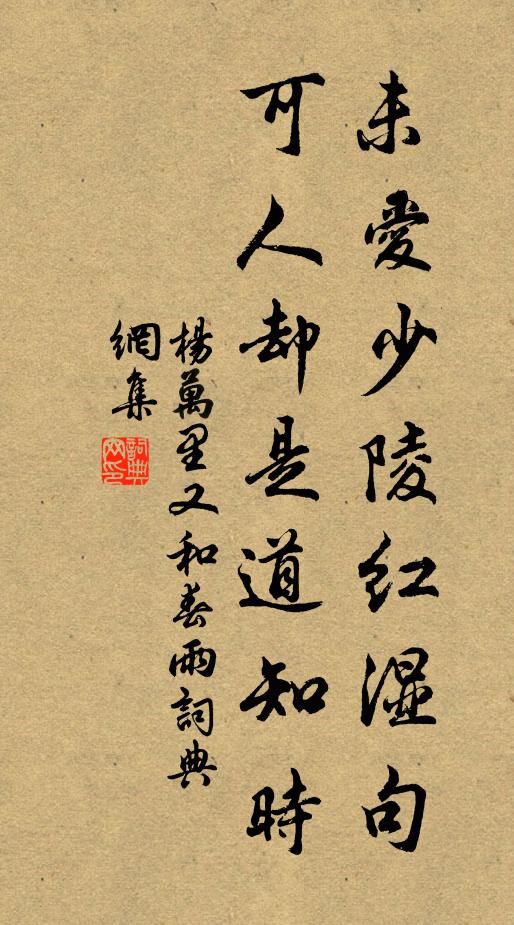 未愛少陵紅濕句
可人却是道知時
楊萬里又和春雨詞典
網集
詞典
网印